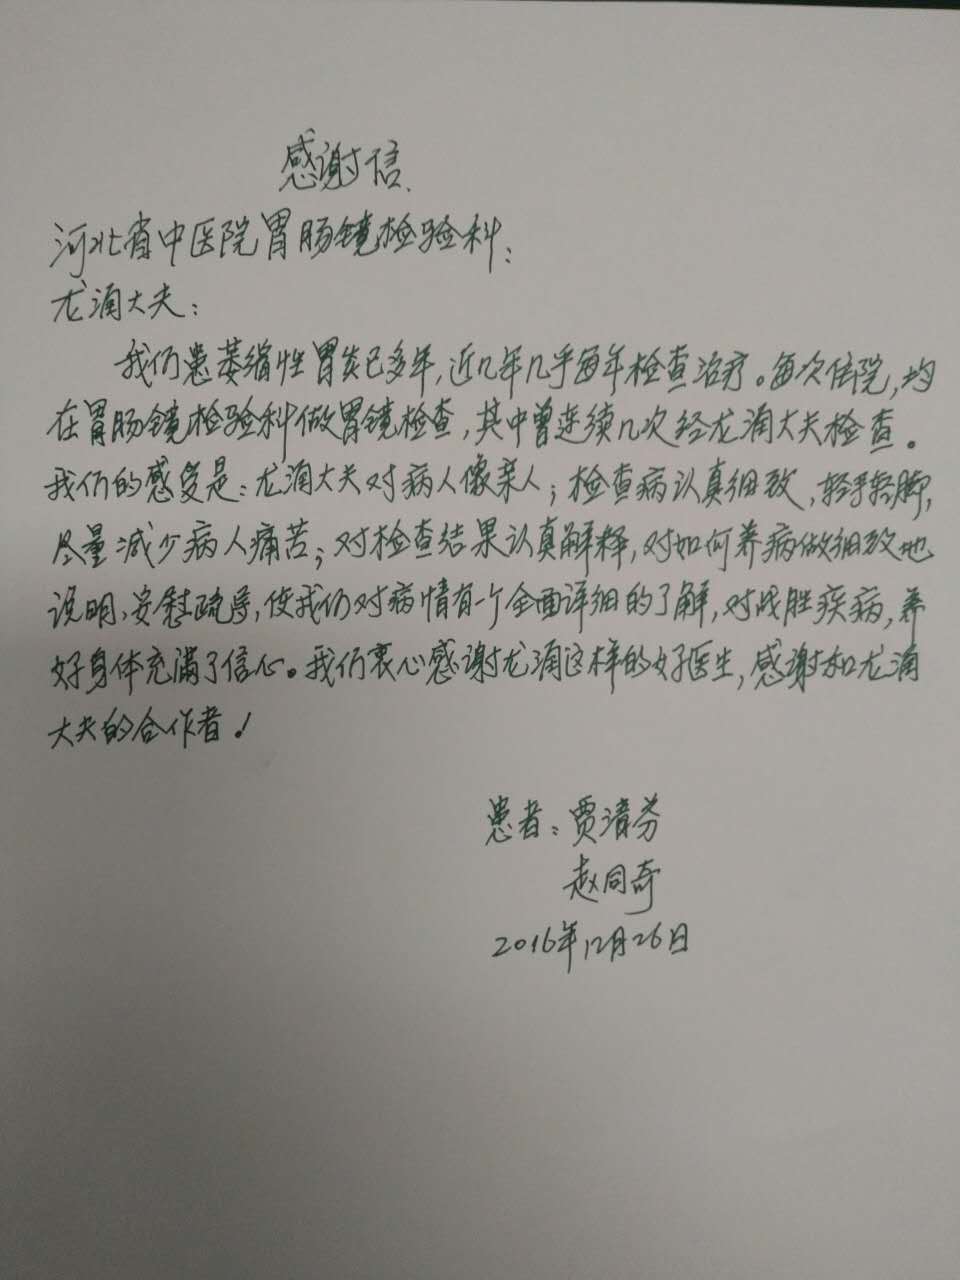 感谢信
河北省中医院胃肠镜检验科：
龙涌大夫：
我们患萎缩性胃炎已多年，近几年几乎每年检查治疗。每次住院，均
在胃肠镜检验科做胃镜检查，其中曾连续几次经龙涌大夫检查。
我们的感受是：龙涌大夫对病人像亲人；检查病认真细致，轻手轻脚，
尽量减少病人痛苦；对检查结果认真解释，对如何养病做细致地
说明、安慰疏导，使我们对病情有一个全面详细的了解，对战胜疾病，养
好身体充满了信心。我们衷心感谢龙涌这样的好医生，感谢和龙涌
大夫的合作者！
患者：贾清芬
赵同奇
2016年12月26日